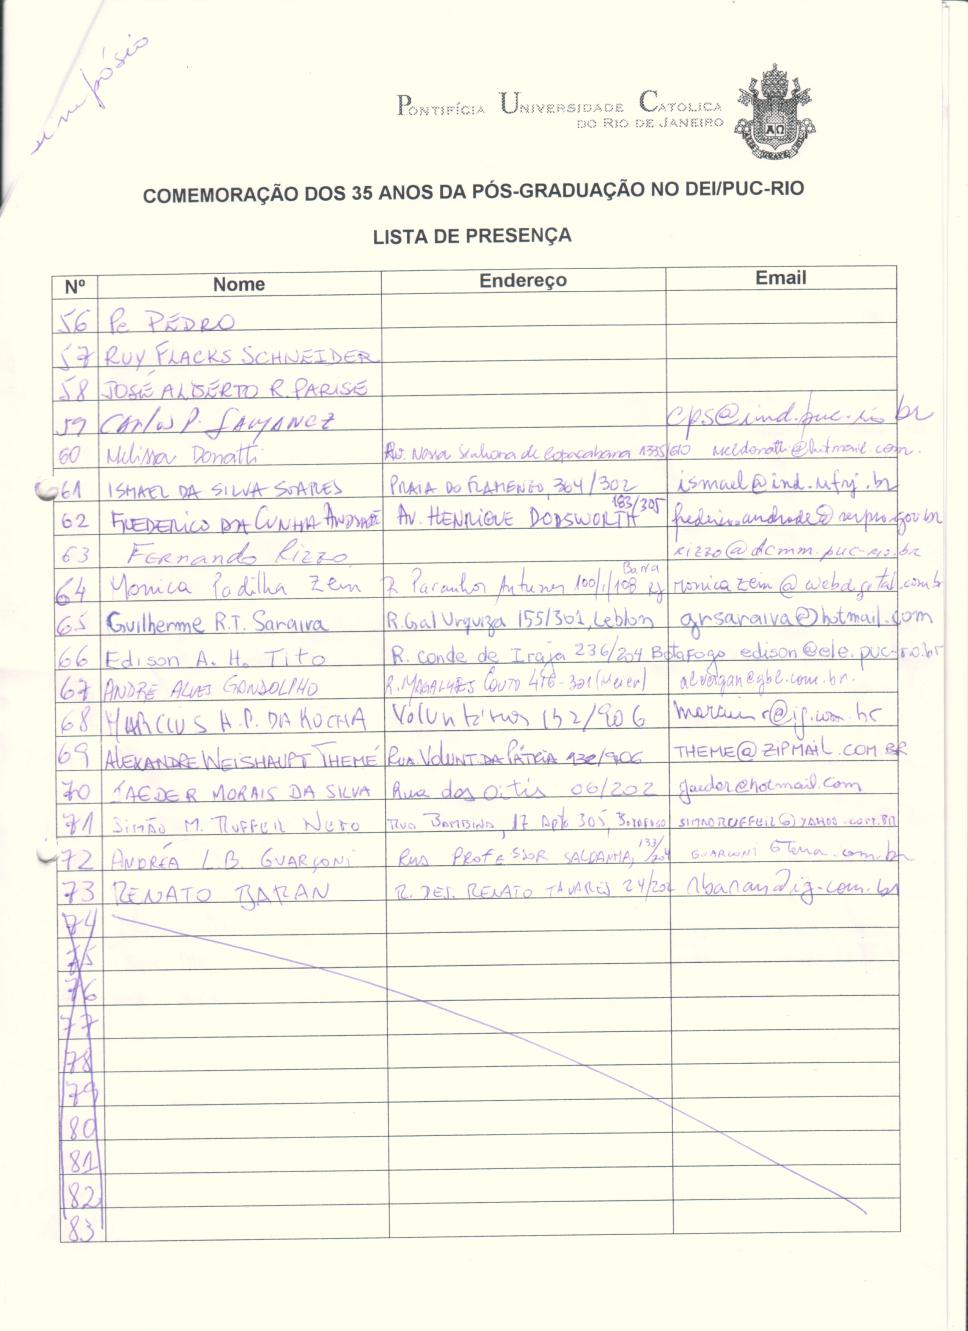 simpósio
PONTIFÍCIA UNIVERSIDADE CATOLICA
DO RIO DE JANEIRO
COMEMORAÇÃO DOS 35 ANOS DA PÓS-GRADUAÇÃO NO DEI/PUC-RIO
LISTA DE PRESENÇA
Nº Nome Endereço Email
56 Pe PEDRO
57 RUY FLACKS SCHNEIDER
58 JOSÉ ALBERTO R. PARISE
59 Carlos P. Samanez cps@ind.puc-rio.br
60 Melissa Donatti Av. Nossa Senhora de Copacabana 1335/610 meldonatti@hotmail.com.
61 ISMAEL DA SILVA SOARES PRAIA DO FLAMENGO, 364/302 ismael@ind.ufrj.br
62 FREDERICO DA CUNHA ANDRADE AV. HENRIQUE DODSWORTH 183/305 frederico.andrade@serpro.gov.br
63 Fernando Rizzo RIZZO@dcmm.puc-rio.br
64 Monica Padilha Zein R Paranhos Antunes 100/1/108 Barra RJ Monica Zein@webdigital.com.br
65 Guilherme R.T. Saraiva R. Gal Urquiza 155/301, Leblon grsaraiva@hotmail.com
66 Edison A. H. Tito R. conde de Irajá 236/204 Botafogo edison@ele.puc-rio.br
67 ANDRÉ ALVES GONDOLPHO R. MAGALHÃES COUTO 416-321 (Meier)
68 MARCIUS H.P. DA ROCHA Voluntários 132/906
69 ALEXANDRE WEISHAUPT THEMÉ RUA VOLUNT DA PÁTRIA 132/906 THEME@ZIPMAIL.COM BR
70 JAEDER MORAIS DA SILVA Rua dos Oitis 06/202 jaeder@hotmail.com
71 SIMÃO M. RUFFEIL NETO RUA BAMBINA, 17 Apto 305, BOTAFOGO SIMAORUFFEIL@YAHOO.COM.BR
72 ANDRÉA L.B. GUARÇONI RUA PROFESSOR SALDANHA, 133/204 GUARCONI@terra.com.br
73 RENATO BARAN R. DES. RENATO TAVARES 24/202 rbaran@ig.com.br
74
75
76
77
78
79
80
81
82
83